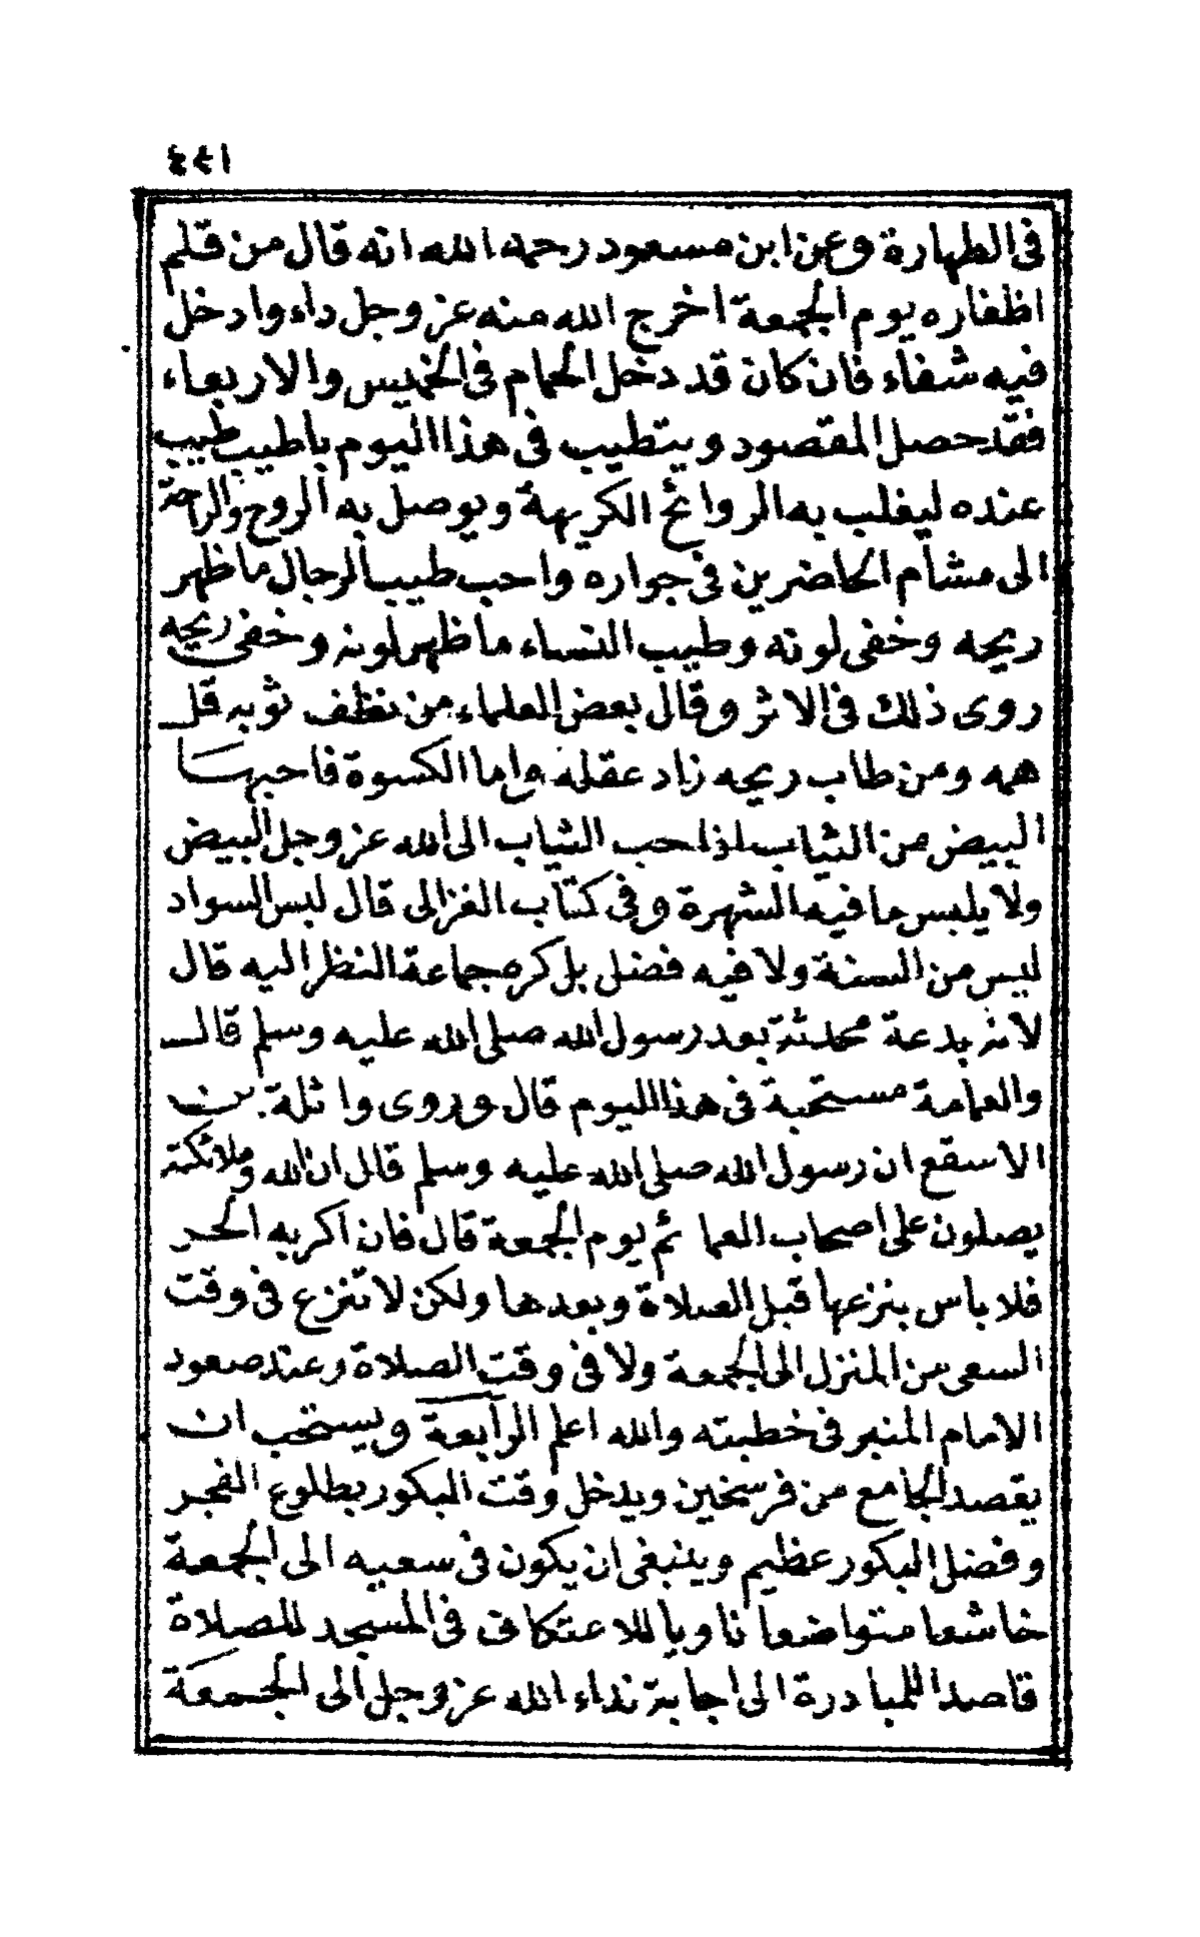 في الطهارة وعن ابن مسعود رحمه الله انه قال من قلم
اظفاره يوم الجمعة اخرج الله منه عز وجل داء وادخل
فيه شفاء فان كان قد دخل الحمام في الخميس والاربعاء
فقد حصل المقصود ويتطيب في هذا اليوم باطيب طيب
عنده ليغلب به الروائح الكريهة ويوصل به الروح والراحة
الى مشام الحاضرين في جواره واحب طيب الرجال ما ظهر
ريحه وخفي لونه وطيب النساء ما ظهر لونه وخفي ريحه
روى ذلك في الاثر وقال بعض العلماء من نظف ثوبه قل
همه ومن طاب ريحه زاد عقله واما الكسوة فاحبها
البيض من الثياب اذ احب الثياب الى الله عز وجل البيض
ولا يلبس ما فيه الشهرة وفي كتاب الغزالى قال لبس السواد
ليس من السنة ولا فيه فضل بل كره جماعة النظر اليه قال
لانه بدعة محدثة بعد رسول الله صلى الله عليه وسلم قال
والعمامة مستحبة في هذا اليوم قال وروى واثلة بن
الاسقع ان رسول الله صلى الله عليه وسلم قال ان الله وملائكته
يصلون على اصحاب العمائم يوم الجمعة قال فان اكربه الحر
فلا باس بنزعها قبل الصلاة وبعدها ولكن لا تنزع في وقت
السعي من المنزل الى الجمعة ولا في وقت الصلاة وعند صعود
الامام المنبر في خطبته والله اعلم الرابعة ويستحب ان
يقصد الجامع من فرسخين ويدخل وقت البكور بطلوع الفجر
وفضل البكور عظيم وينبغي ان يكون في سعيه الى الجمعة
خاشعا متواضعا ناويا للاعتكاف في المسجد للصلاة
قاصدا للمبادرة الى اجابة نداء الله عز وجل الى الجمعة